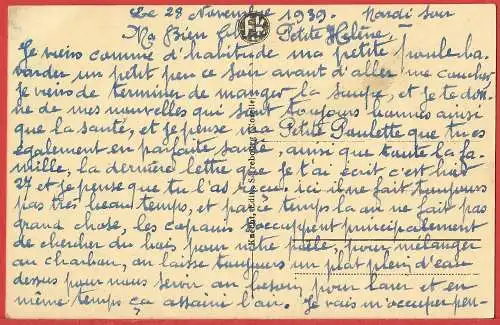 Le 28 Novembre 1939. Mardi soir
Ma Bien Petite Hélène,
Je viens comme d'habitude ma petite poule ba-
varder un petit peu ce soir avant d'aller me coucher
je viens de terminer de manger la soupe, et je te don-
ne de mes nouvelles qui sont toujours bonnes ainsi
que la santé, et je pense ma Petite Paulette que tu es
également en parfaite santé, ainsi que toute la fa-
mille, la dernière lettre que je t'ai écrit c'est lundi
27 et je pense que tu l'as reçu. ici il ne fait toujours
pas très beau temps, et par ce temps la on ne fait pas
grand chose, les copains s'occupent principalement
de chercher du bois pour notre poële, pour mélanger
au charbon, on laisse toujours un plat plein d'eau
dessus pour nous servir au besoin, pour laver et en
même temps ça assaini l'air. Je vais m'occuper pen-